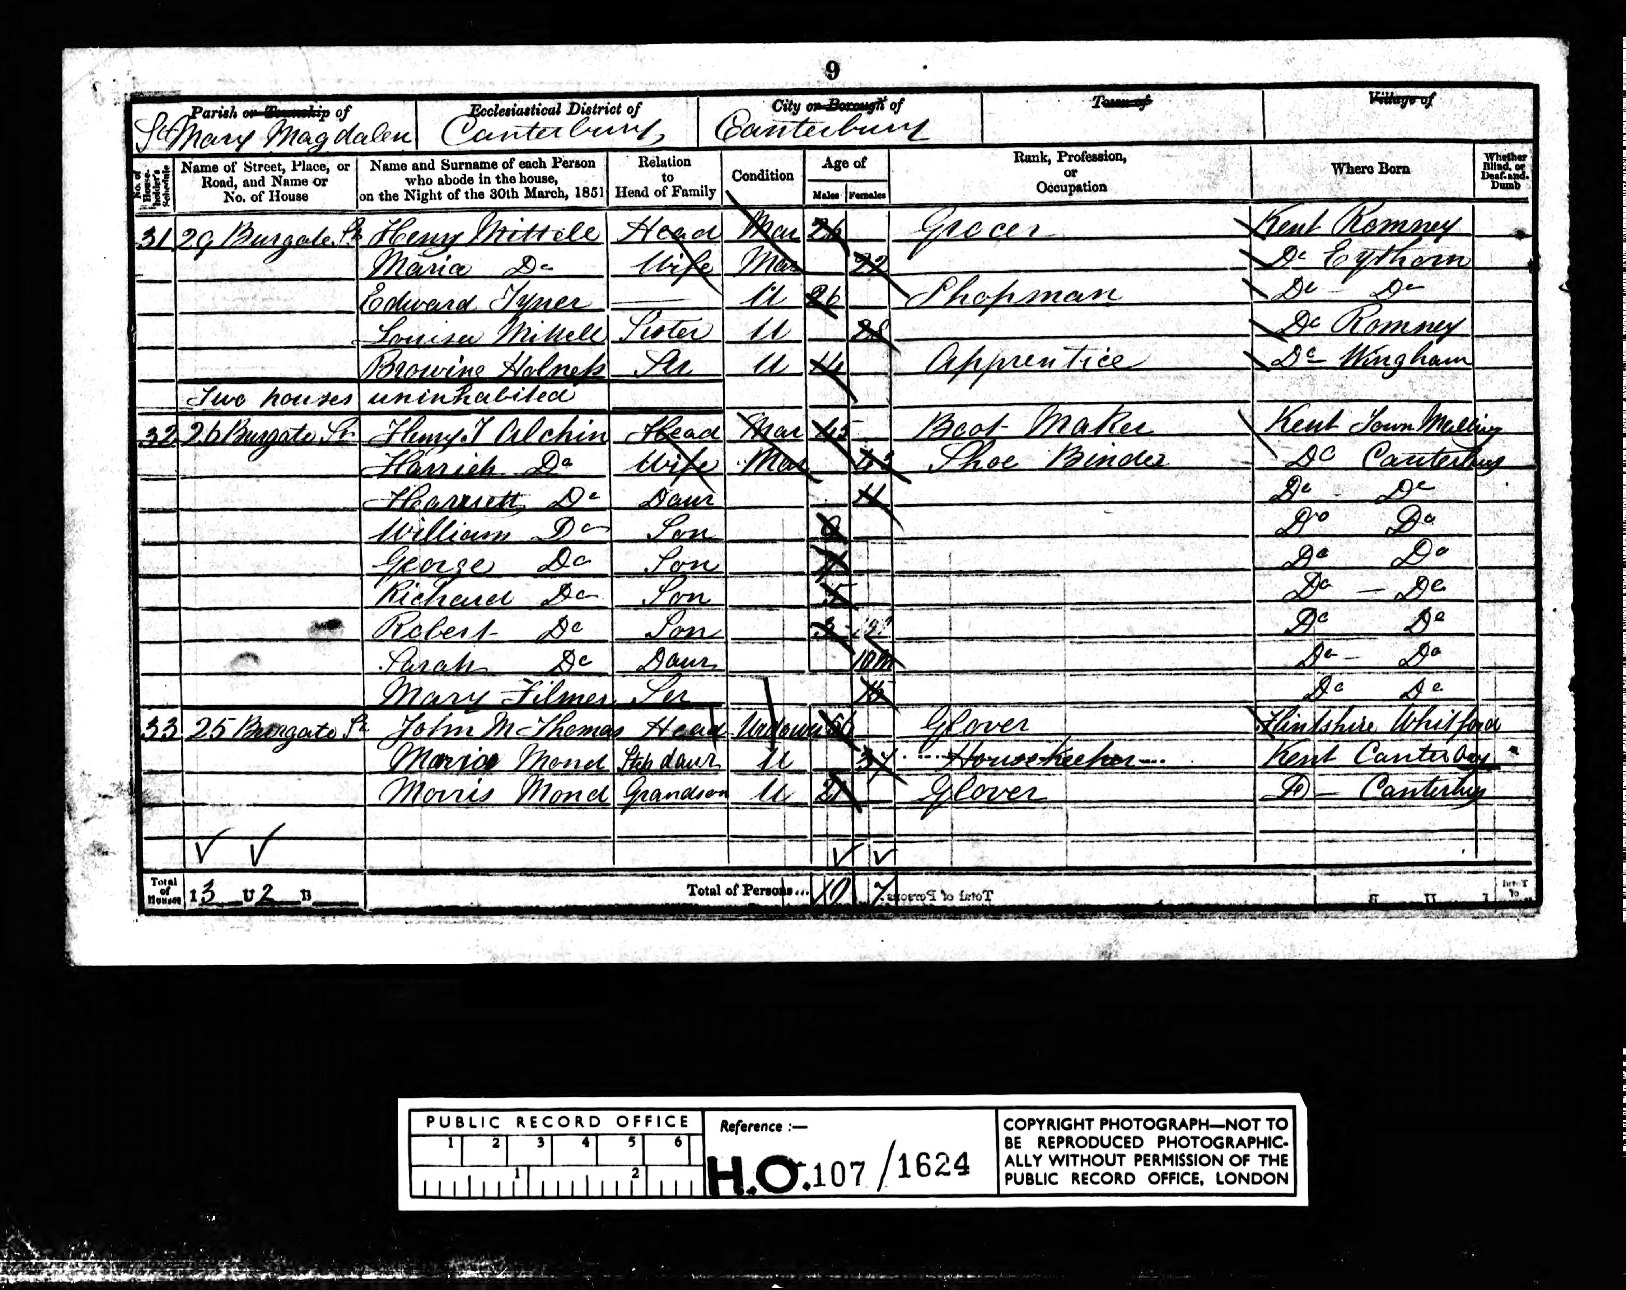 9
Parish or Township of Ecclesiastical District of City or Borough of Town of Village of
St Mary Magdalen Canterbury Canterbury
No. of House-holder's Schedule Name of Street, Place, or Road, and Name or No. of House Name and Surname of each Person who abode in the house, on the Night of the 30th March, 1851 Relation to Head of Family Condition Age of Males Females Rank, Profession, or Occupation Where Born Whether Blind, or Deaf-and-Dumb
31 29 Burgate St Henry Mittell Head Mar 26 Grocer Kent Romney
Maria Do Wife Mar 22 Do Eythorn
Edward Tyner U 26 Shopman Do Do
Louisa Mittell Sister U 28 Do Romney
Browine Holness Ser U 14 Apprentice Do Wingham
Two houses uninhabited
32 26 Burgate St Henry T Alchin Head Mar 45 Boot Maker Kent Town Malling
Harriet Do Wife Mar Shoe Binder Do Canterbury
Harriett Do Daur 11 Do Do
William Do Son 9 Do Do
George Do Son Do Do
Richard Do Son 5 Do Do
Robert Do Son 3 Do Do
Sarah Do Daur 10m Do Do
Mary Filmer Ser 15 Do Do
33 25 Burgate St John M Thomas Head Widower Glover Flintshire Whitford
Maria Mond Step daur U 34 Housekeeper Kent Canterbury
Morris Mond Grandson U 21 Glover Do Canterbury
Total of Houses I 3 U 2 B Total of Persons... 10 7
PUBLIC RECORD OFFICE
1 2 3 4 5 6
1 2
Reference :—
H.O. 107 / 1624
COPYRIGHT PHOTOGRAPH—NOT TO
BE REPRODUCED PHOTOGRAPHIC-
ALLY WITHOUT PERMISSION OF THE
PUBLIC RECORD OFFICE, LONDON